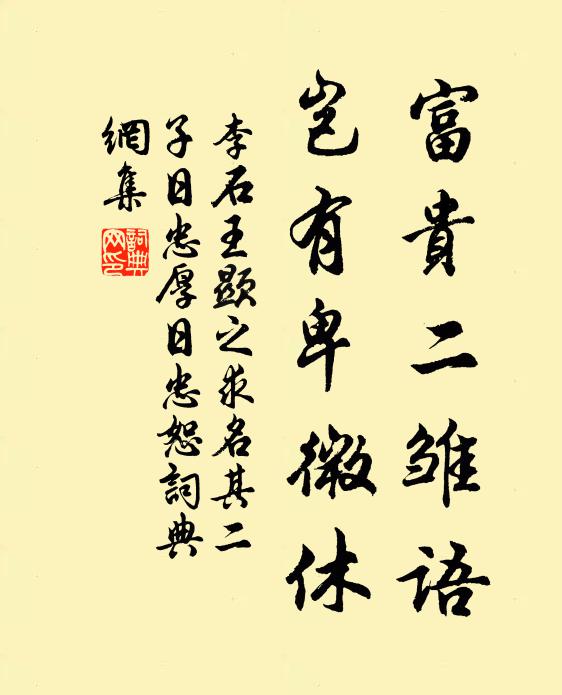 富貴二雏語
豈有卑微休
李石王顯之求名其二
子日忠厚日忠恕詞典
網集
詞典
网印